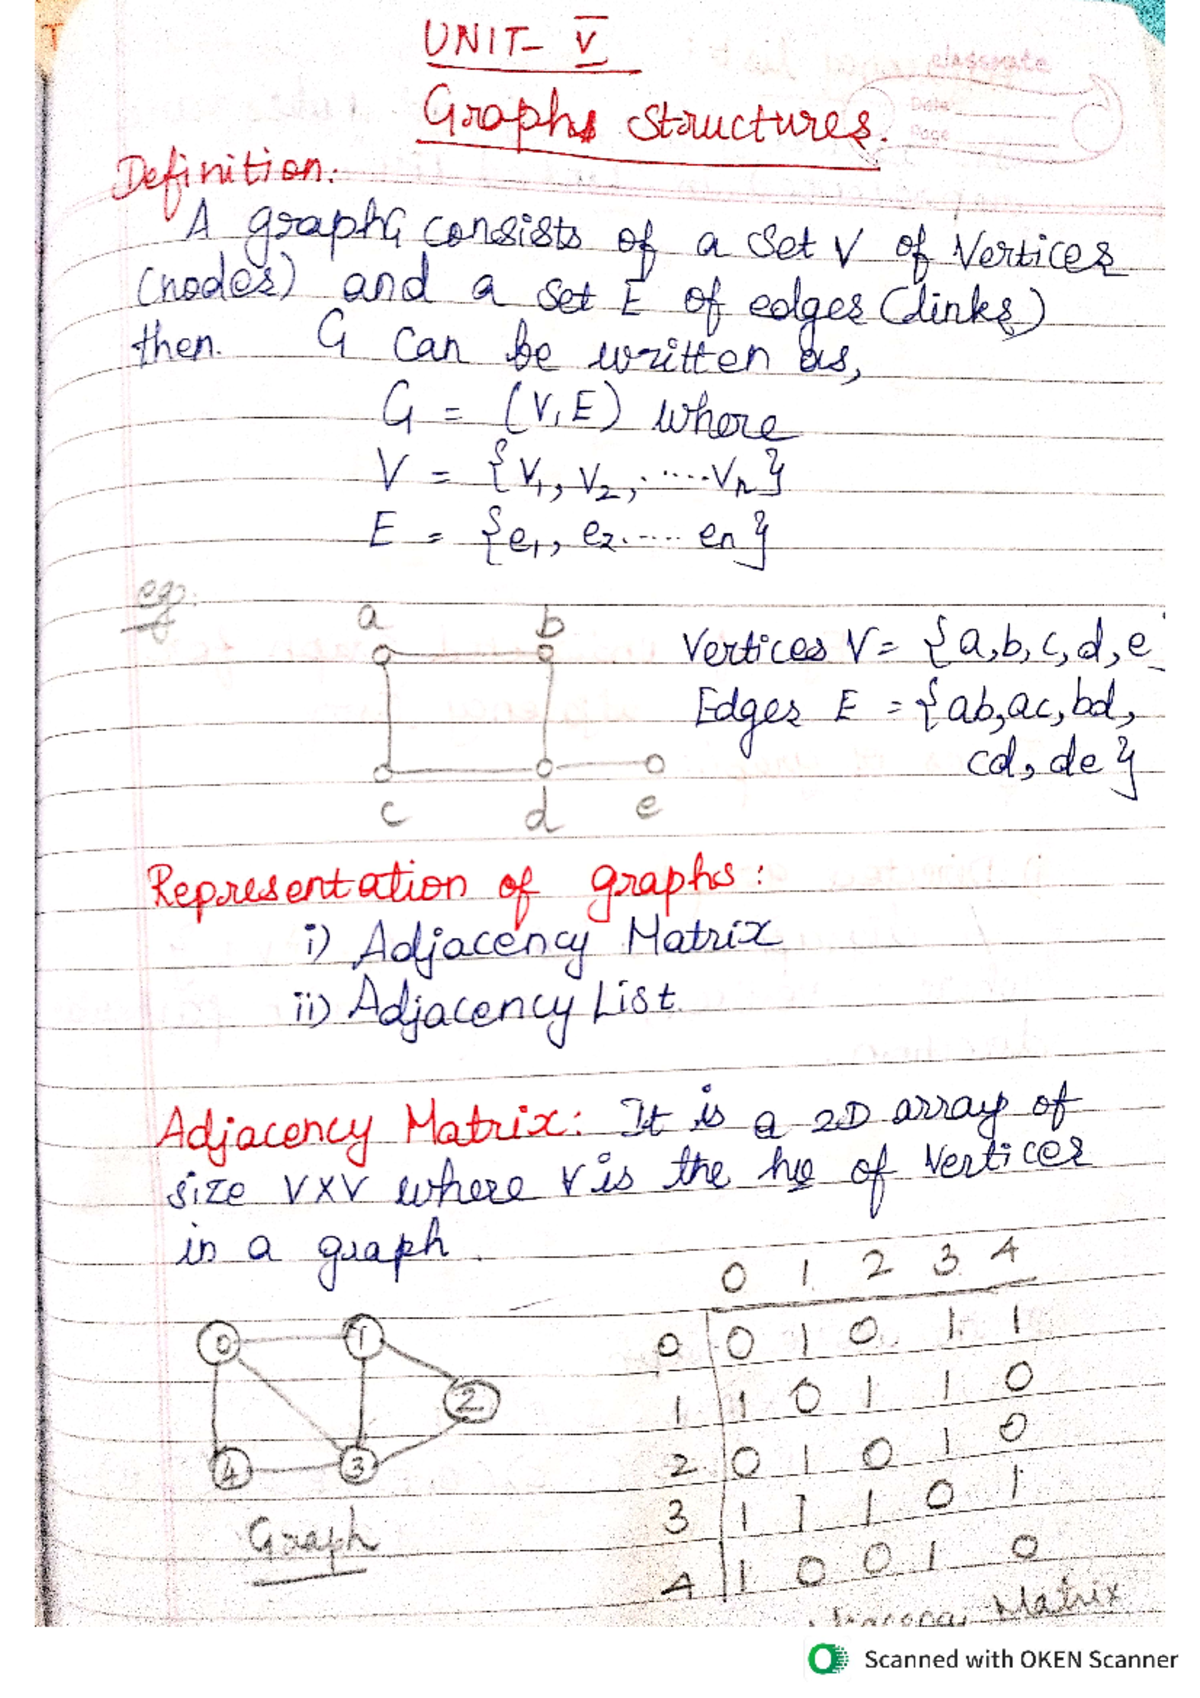 UNIT- V
classmate
Date
Page
Graphs Structures.
Definition:
A graph G consists of a set V of Vertices
(nodes) and a set E of edges (links)
then G can be written as,
G = (V, E) where
V = {V1, V2, .....Vn}
E = {e1, e2..... en}
eg:
a b
c d e
Vertices V = {a,b,c,d,e
Edges E = {ab,ac,bd,
cd, de}
Representation of graphs:
i) Adjacency Matrix
ii) Adjacency List.
Adjacency Matrix: It is a 2D array of
size VXV where V is the no of Vertices
in a graph.
0 1 2 3 4
0 0 1 0 1 1
1 1 0 1 1 0
2 0 1 0 1 0
3 1 1 1 0 1
4 1 0 0 1 0
0 1
2
4 3
Graph
Matrix
Scanned with OKEN Scanner